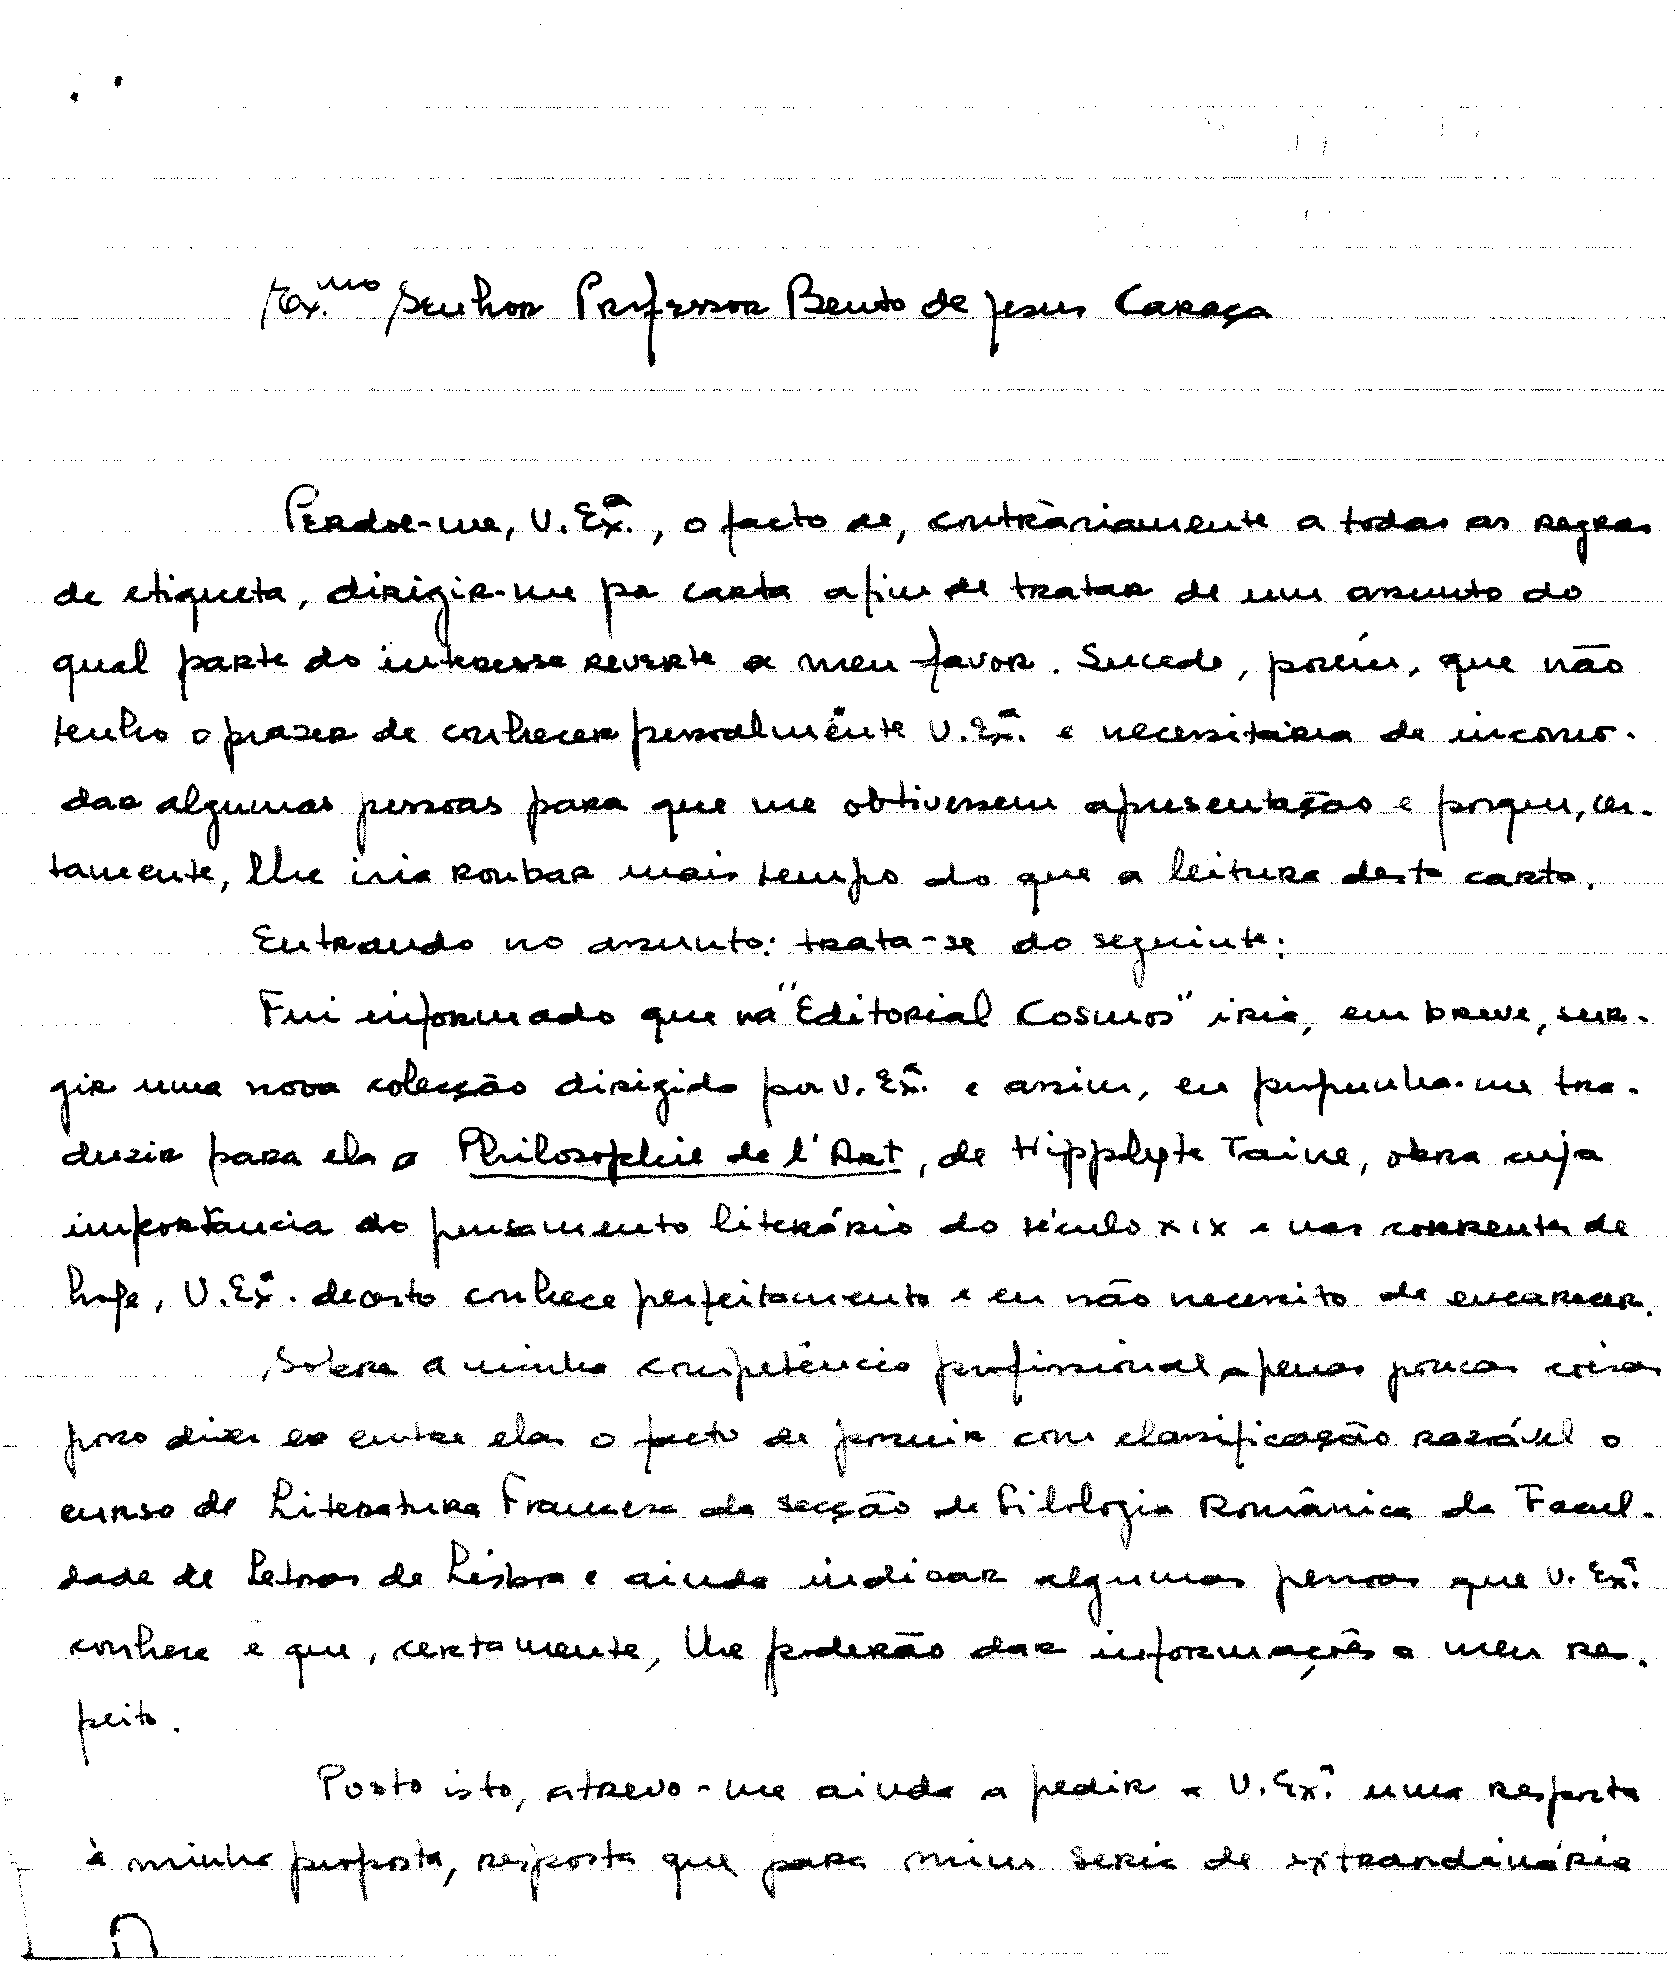 Ex.mo Senhor Professor Bento de Jesus Caraça
Perdoe-me, V. Exª., o facto de, contràriamente a todas as regras
de etiqueta, dirigir-me por carta afim de tratar de um assunto do
qual parte do interesse reverte a meu favor. Sucede, porém, que não
tenho o prazer de conhecer pessoalmente V. Exª. e necessitaria de incomo-
dar algumas pessoas para que me obtivessem apresentação e porque, cer-
tamente, lhe iria roubar mais tempo do que a leitura desta carta.
Entrando no assunto: trata-se do seguinte:
Fui informado que na "Editorial Cosmos" iria, em breve, sur-
gir uma nova colecção dirigida por V. Exª. e assim, eu propunha-me tra-
duzir para ela a Philosophie de l'Art, de Hippolyte Taine, obra cuja
importância do pensamento literário do século XIX e nas correntes de
hoje, V. Exª. decerto conhece perfeitamente e eu não necessito de encarecer.
Sobre a minha competência profissional apenas poucas coisas
posso dizer e entre elas o facto de possuir com classificação razoável o
curso de Literatura Francesa da secção de Filologia Românica da Facul-
dade de Letras de Lisboa e ainda indicar algumas pessoas que V. Exª.
conhece e que, certamente, lhe poderão dar informações a meu res-
peito.
Posto isto, atrevo-me ainda a pedir a V. Exª. uma resposta
à minha proposta, resposta que para mim seria de extraordinária